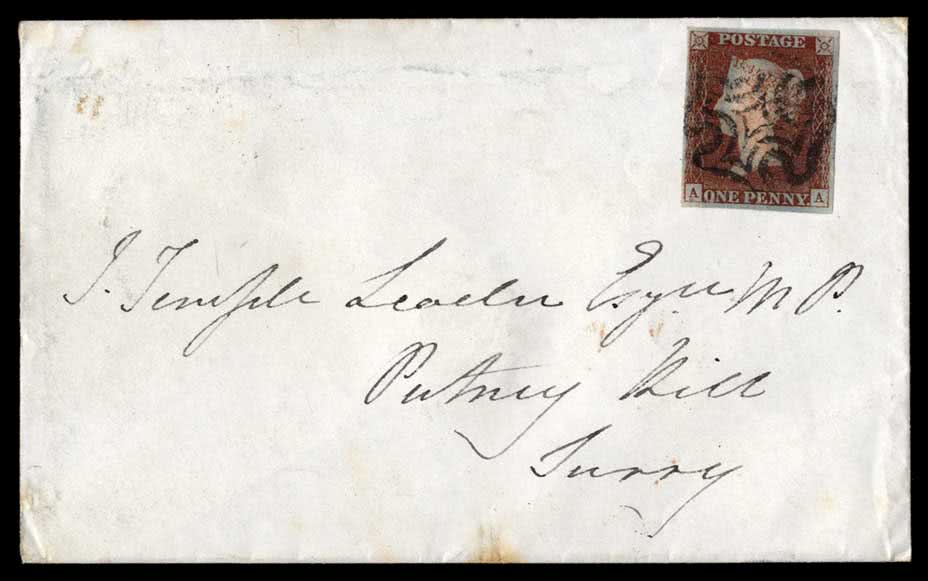 POSTAGE
A ONE PENNY A
J. Temple Leader Esqre M P.
Putney Hill
Surry